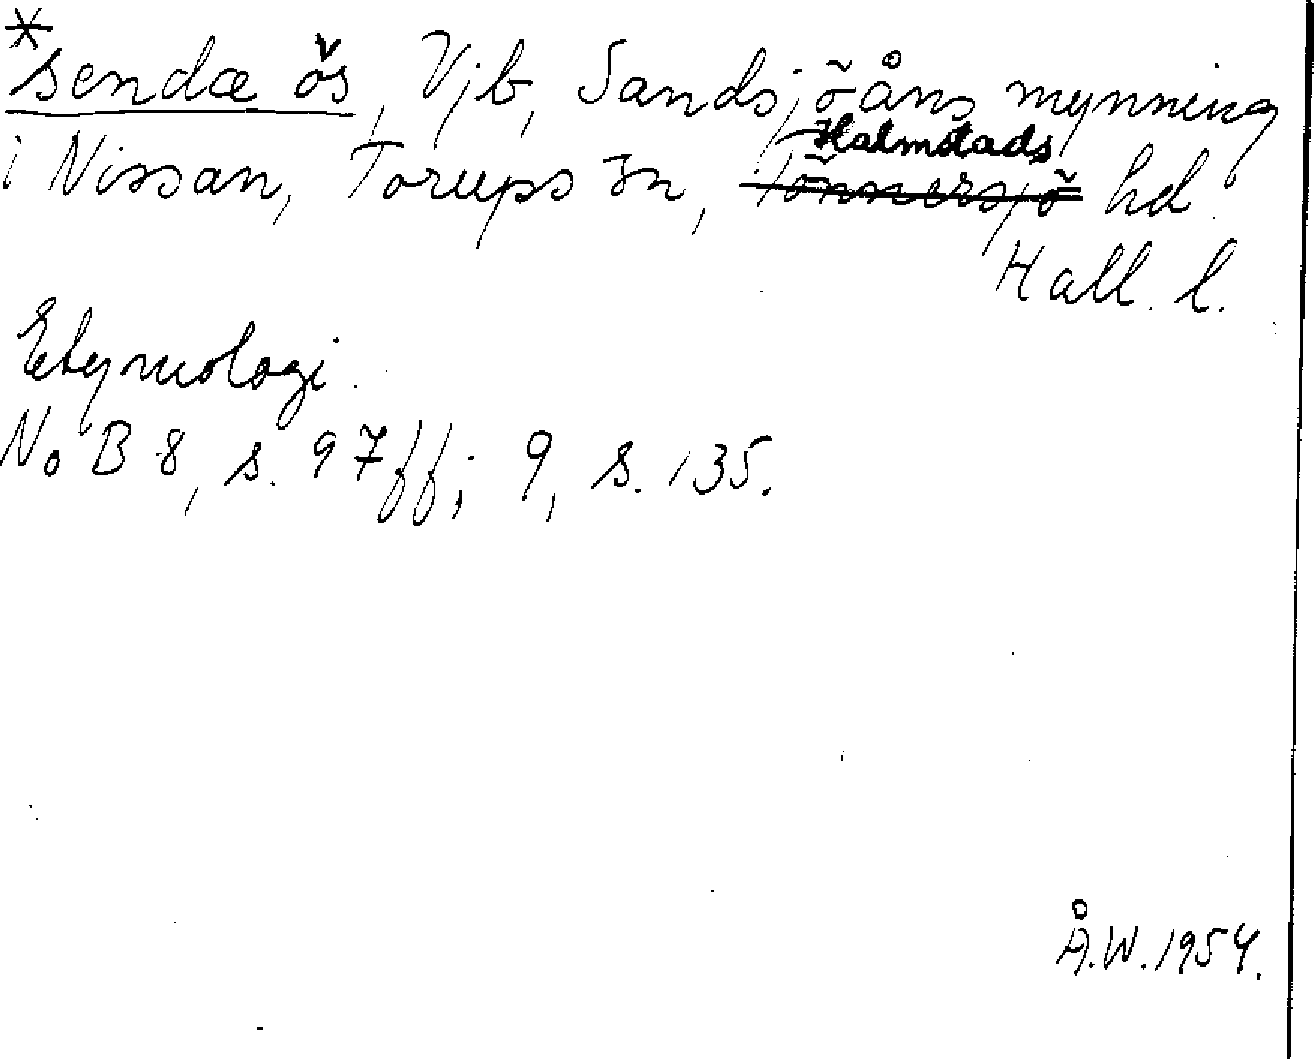 *sendæ ǒs, Vjb, Sandsjöåns mynning
i Nissan, Torups sn, Halmstads hd.
Hall. l.
Etymologi.
NoB 8, s. 97ff; 9, s. 135.
Å.W. 1954.